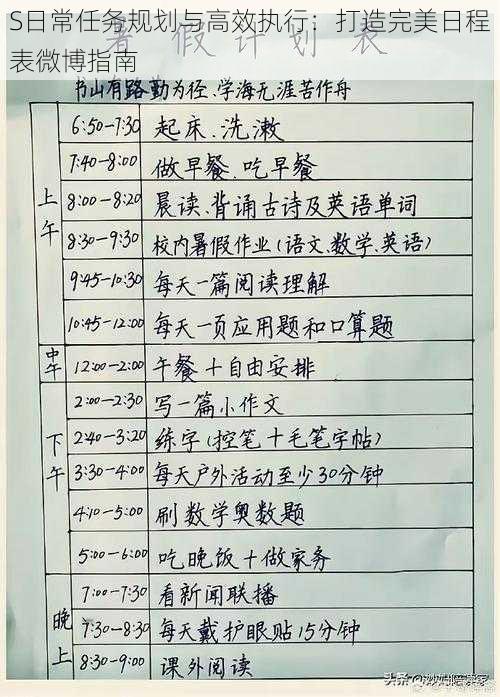 S日常任务规划与高效执行：打造完美日程
表微博指南
暑假计划表
书山有路勤为径、学海无涯苦作舟
上午
6:50-7:30 起床、洗漱
7:40-8:00 做早餐、吃早餐
8:00-8:20 晨读、背诵古诗及英语单词
8:30-9:30 校内暑假作业(语文、数学、英语)
9:45-10:30 每天一篇阅读理解
10:45-12:00 每天一页应用题和口算题
中午
12:00-2:00 午餐+自由安排
下午
2:00-2:30 写一篇小作文
2:40-3:20 练字(控笔+毛笔字帖)
3:30-4:00 每天户外活动至少30分钟
4:10-5:00 刷数学奥数题
5:00-6:00 吃晚饭+做家务
晚上
7:00-7:30 看新闻联播
7:30-8:30 每天戴护眼贴15分钟
8:30-9:00 课外阅读